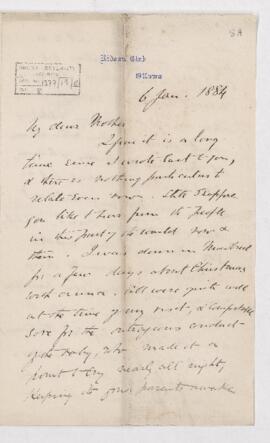 Rideau Club
Ottawa
6 Jan. 1884
My dear Mother
I fear it is a long
time since I wrote last to you,
& there is nothing particular to
relate even now. Still I suppose
you like to hear from the people
in this part of the world now &
then. I was down in Montreal
for a few days about Christmas
All were quite well
at the time of my visit, &
save for the outrageous conduct
of the baby, who made it a
point to cry nearly all night,
keeping its poor parents awake